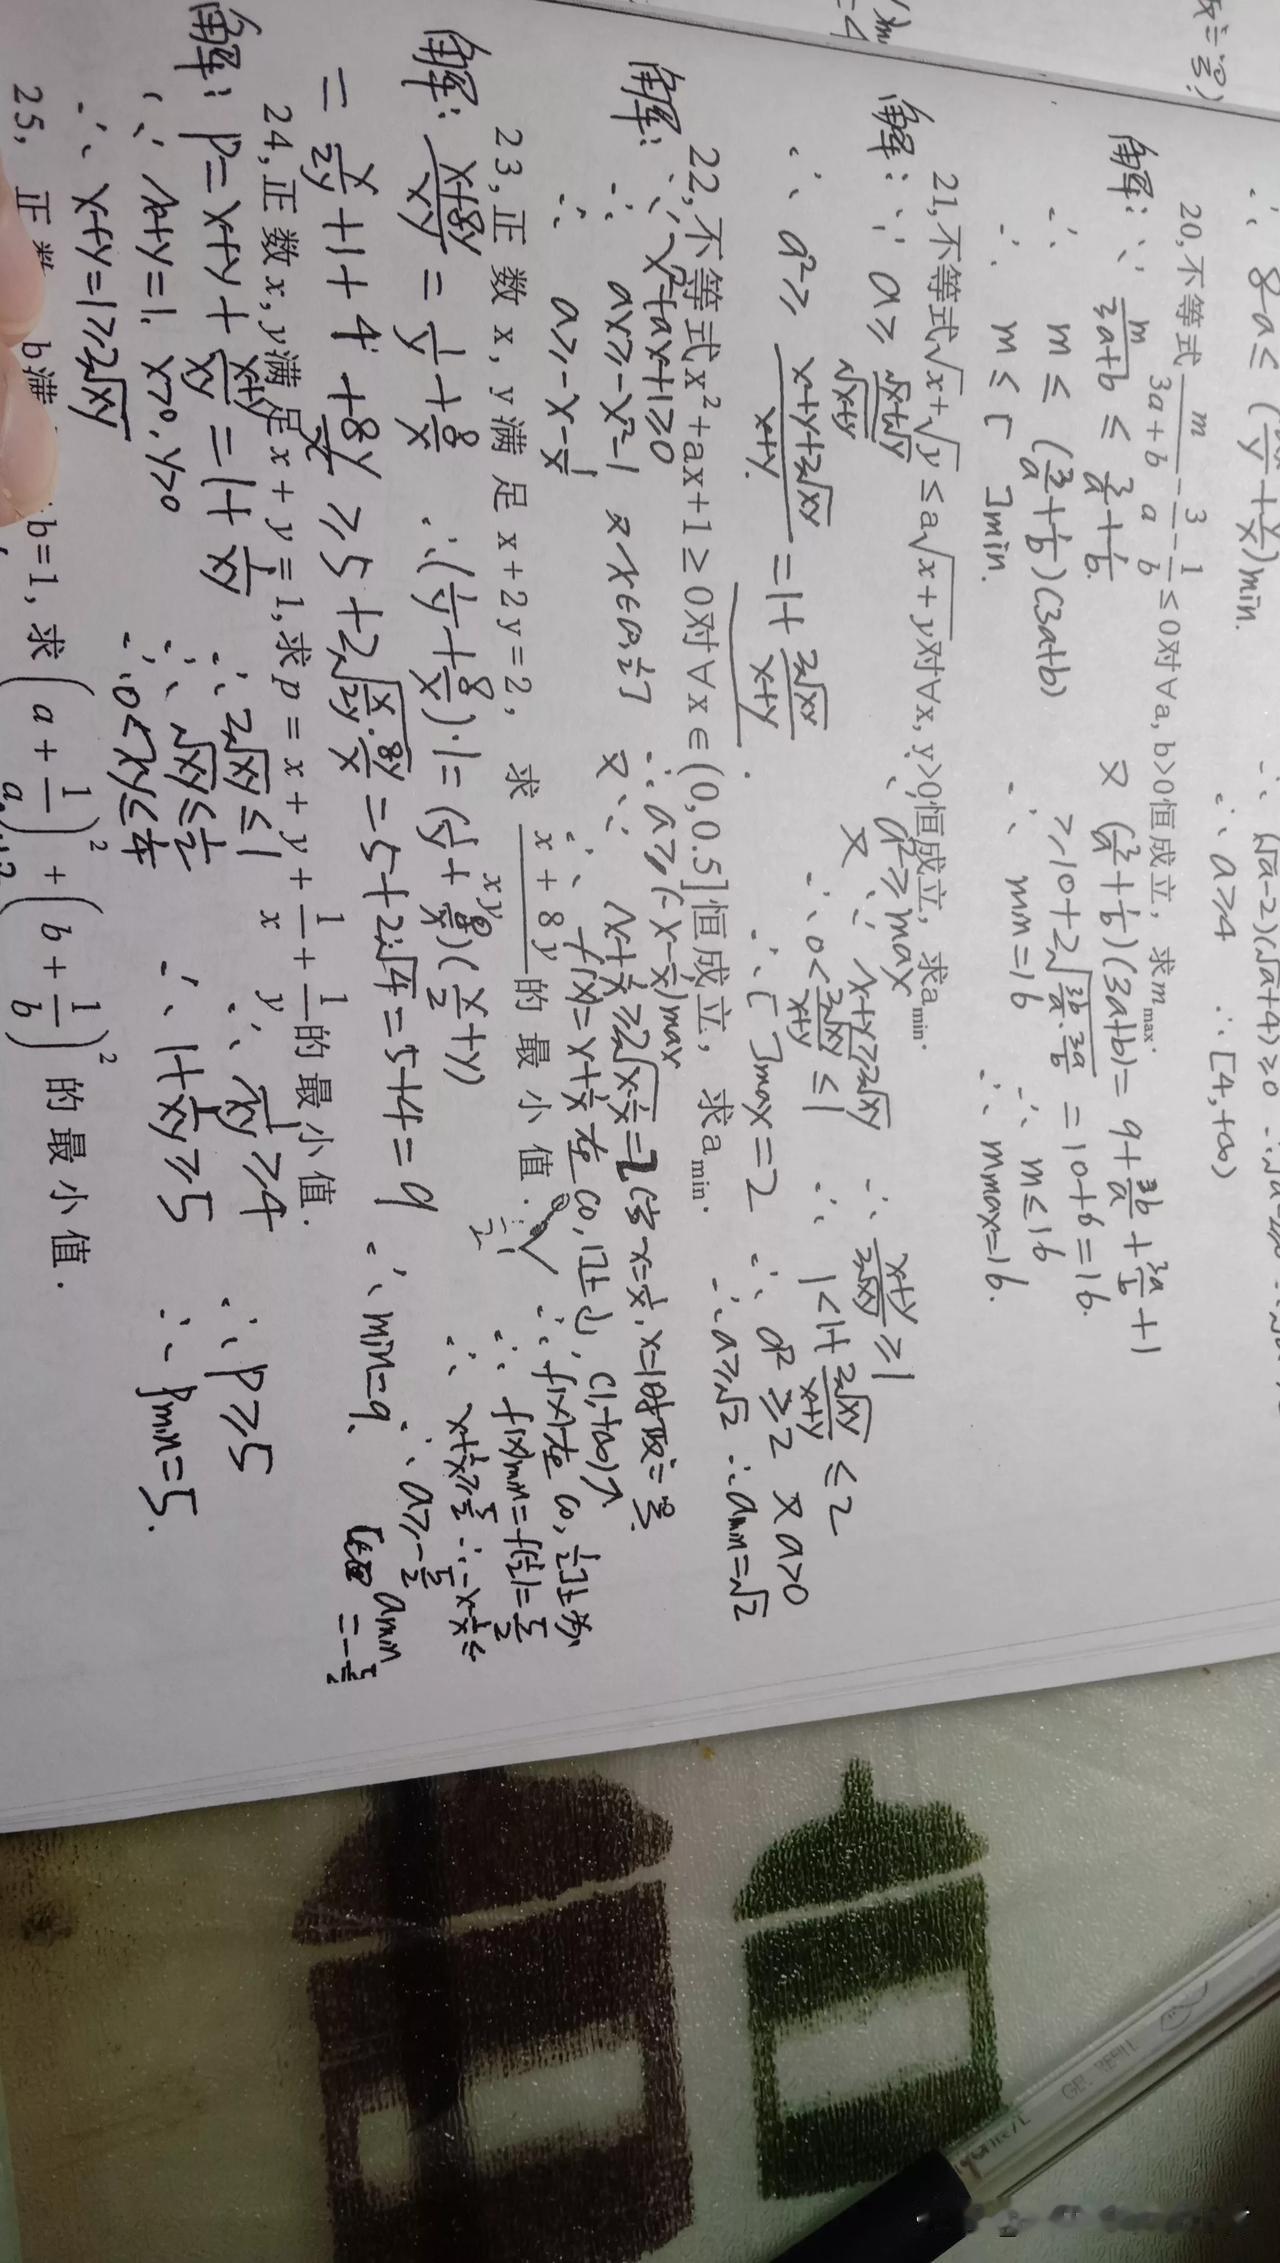 ∴ 8-a ≤ (\frac{2x}{y}+\frac{y}{x})min.
∴ a≥4 ∴ [4,+∞)
20,不等式\frac{m}{3a+b}-\frac{3}{a}-\frac{1}{b}≤0对∀a,b>0恒成立，求m_{max}.
解: ∵ \frac{m}{3a+b} ≤ \frac{3}{a}+\frac{1}{b}. 又 (\frac{3}{a}+\frac{1}{b})(3a+b) = 9+\frac{3b}{a}+\frac{3a}{b}+1
∴ m ≤ (\frac{3}{a}+\frac{1}{b})(3a+b) ≥10+2\sqrt{\frac{3b}{a}·\frac{3a}{b}} = 10+6=16.
∴ m ≤ [ ]min. ∴ min=16 ∴ m≤16 ∴ mmax=16.
21,不等式\sqrt{x}+\sqrt{y}≤a\sqrt{x+y}对∀x,y>0恒成立，求a_{min}.
解: ∵ a≥\frac{\sqrt{x}+\sqrt{y}}{\sqrt{x+y}} ∴ a²≥max 又∵ x+y≥2\sqrt{xy} ∴ \frac{x+y}{2\sqrt{xy}}≥1
∴ a²≥\frac{x+y+2\sqrt{xy}}{x+y} = 1+\frac{2\sqrt{xy}}{x+y} ∴ 0<\frac{2\sqrt{xy}}{x+y}≤1 ∴ 1<1+\frac{2\sqrt{xy}}{x+y}≤2
∴ [ ]max=2 ∴ a²≥2 又a>0
∴ a≥\sqrt{2} ∴ amin=\sqrt{2}
22,不等式x²+ax+1≥0对∀x∈(0,0.5]恒成立，求a_{min}.
解: ∵ x²+ax+1≥0 ∴ a≥(-x-\frac{1}{x})max
∴ ax≥-x²-1 又x∈(0,\frac{1}{2}] 又∵ x+\frac{1}{x}≥2\sqrt{x·\frac{1}{x}}=2(当x=\frac{1}{x},x=1时取=号.
∴ a≥-x-\frac{1}{x} ∴ f(x)=x+\frac{1}{x}在(0,1]↓,(1,+∞)↑
∴ f(x)在(0,\frac{1}{2}]↓
∴ f(x)min=f(\frac{1}{2})=\frac{5}{2}
∴ x+\frac{1}{x}≥\frac{5}{2}
∴ a≥-\frac{5}{2}
amin=-\frac{5}{2}
23,正数x,y满足x+2y=2，求\frac{x+8y}{xy}的最小值.
解: \frac{x+8y}{xy} = \frac{1}{y}+\frac{8}{x} ∴ (\frac{1}{y}+\frac{8}{x})·1=(\frac{1}{y}+\frac{8}{x})(\frac{x}{2}+y)
= \frac{x}{2y}+1+4+\frac{8y}{x} ≥5+2\sqrt{\frac{x}{2y}·\frac{8y}{x}} = 5+2\sqrt{4}=5+4=9 ∴ min=9.
24,正数x,y满足x+y=1,求p=x+y+\frac{1}{x}+\frac{1}{y}的最小值.
解: p=x+y+\frac{x+y}{xy}=1+\frac{1}{xy} ∴ 2\sqrt{xy}≤1 ∴ \frac{1}{xy}≥4 ∴ p≥5
∵ x+y=1. x>0.y>0 ∴ \sqrt{xy}≤\frac{1}{2} ∴ 1+\frac{1}{xy}≥5 ∴ pmin=5.
∴ x+y=1≥2\sqrt{xy} ∴ 0<xy≤\frac{1}{4}
25, 正 b满 b=1,求(a+\frac{1}{a})²+(b+\frac{1}{b})²的最小值.